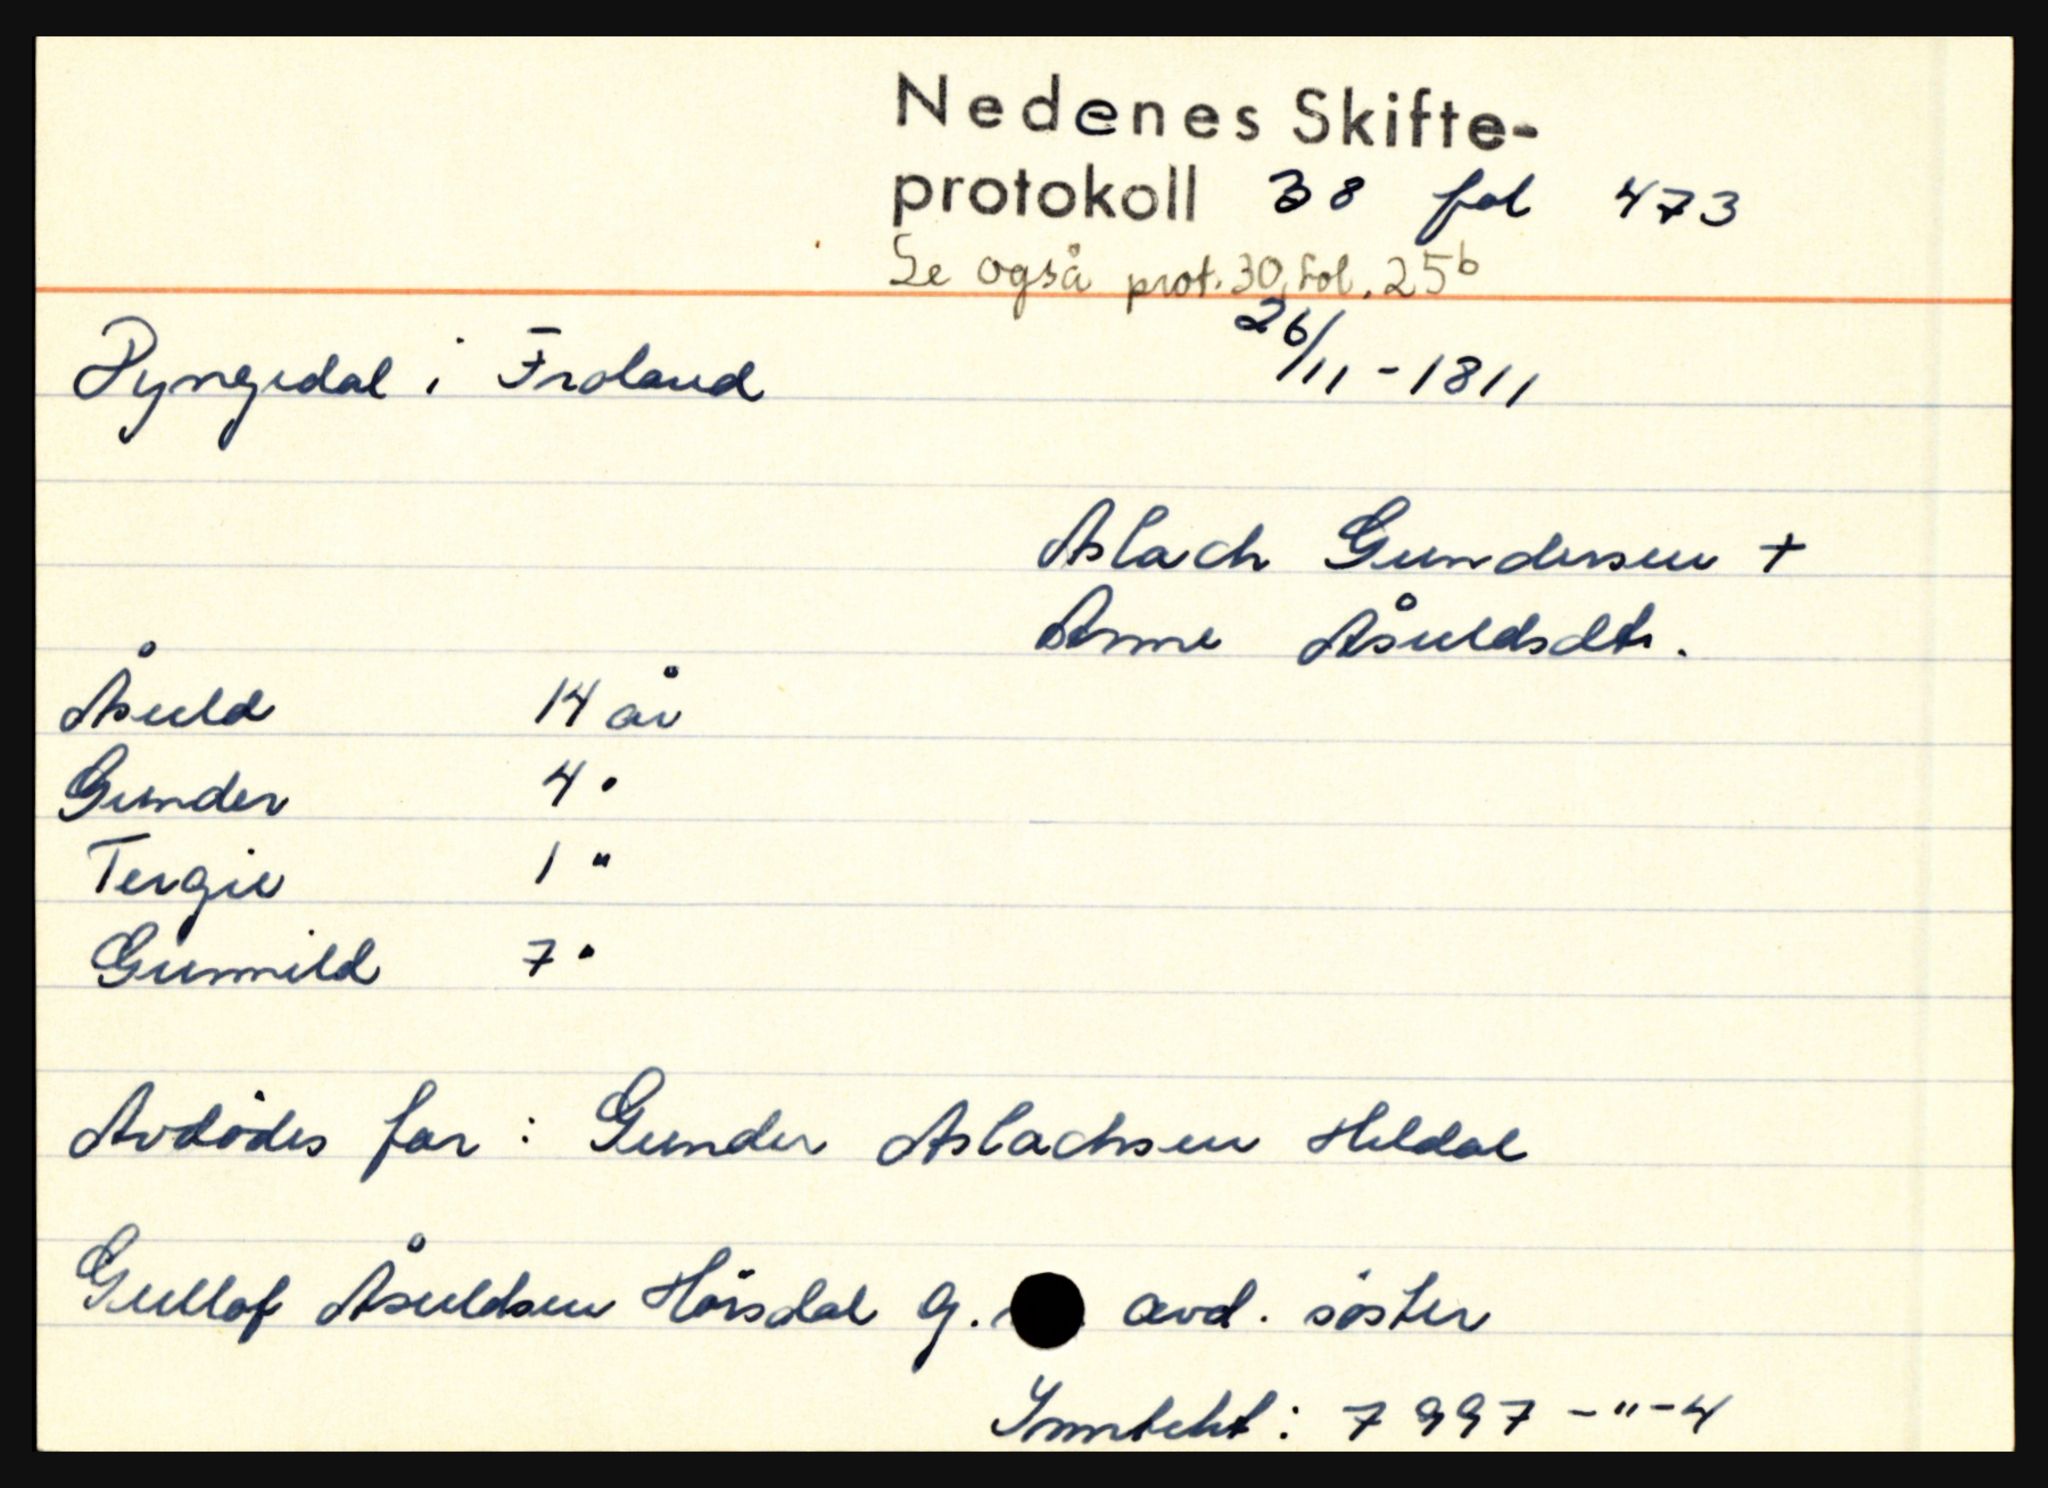 Nedenes Skifte-
protokoll 38 fol 473
Se også prot. 30, fol. 25b
Pyngedal i Froland 26/11-1811
Aslach Gundersen +
Anne Åsuldsdtr.
Åsuld 14 år
Gunder 4 "
Tergie 1 "
Gunnild 7 "
Avdødes far : Gunder Aslachsen Heldal
Gullof Åsuldsen Hørsdal g. avd. søster
Inntekt : 7997 -"-4